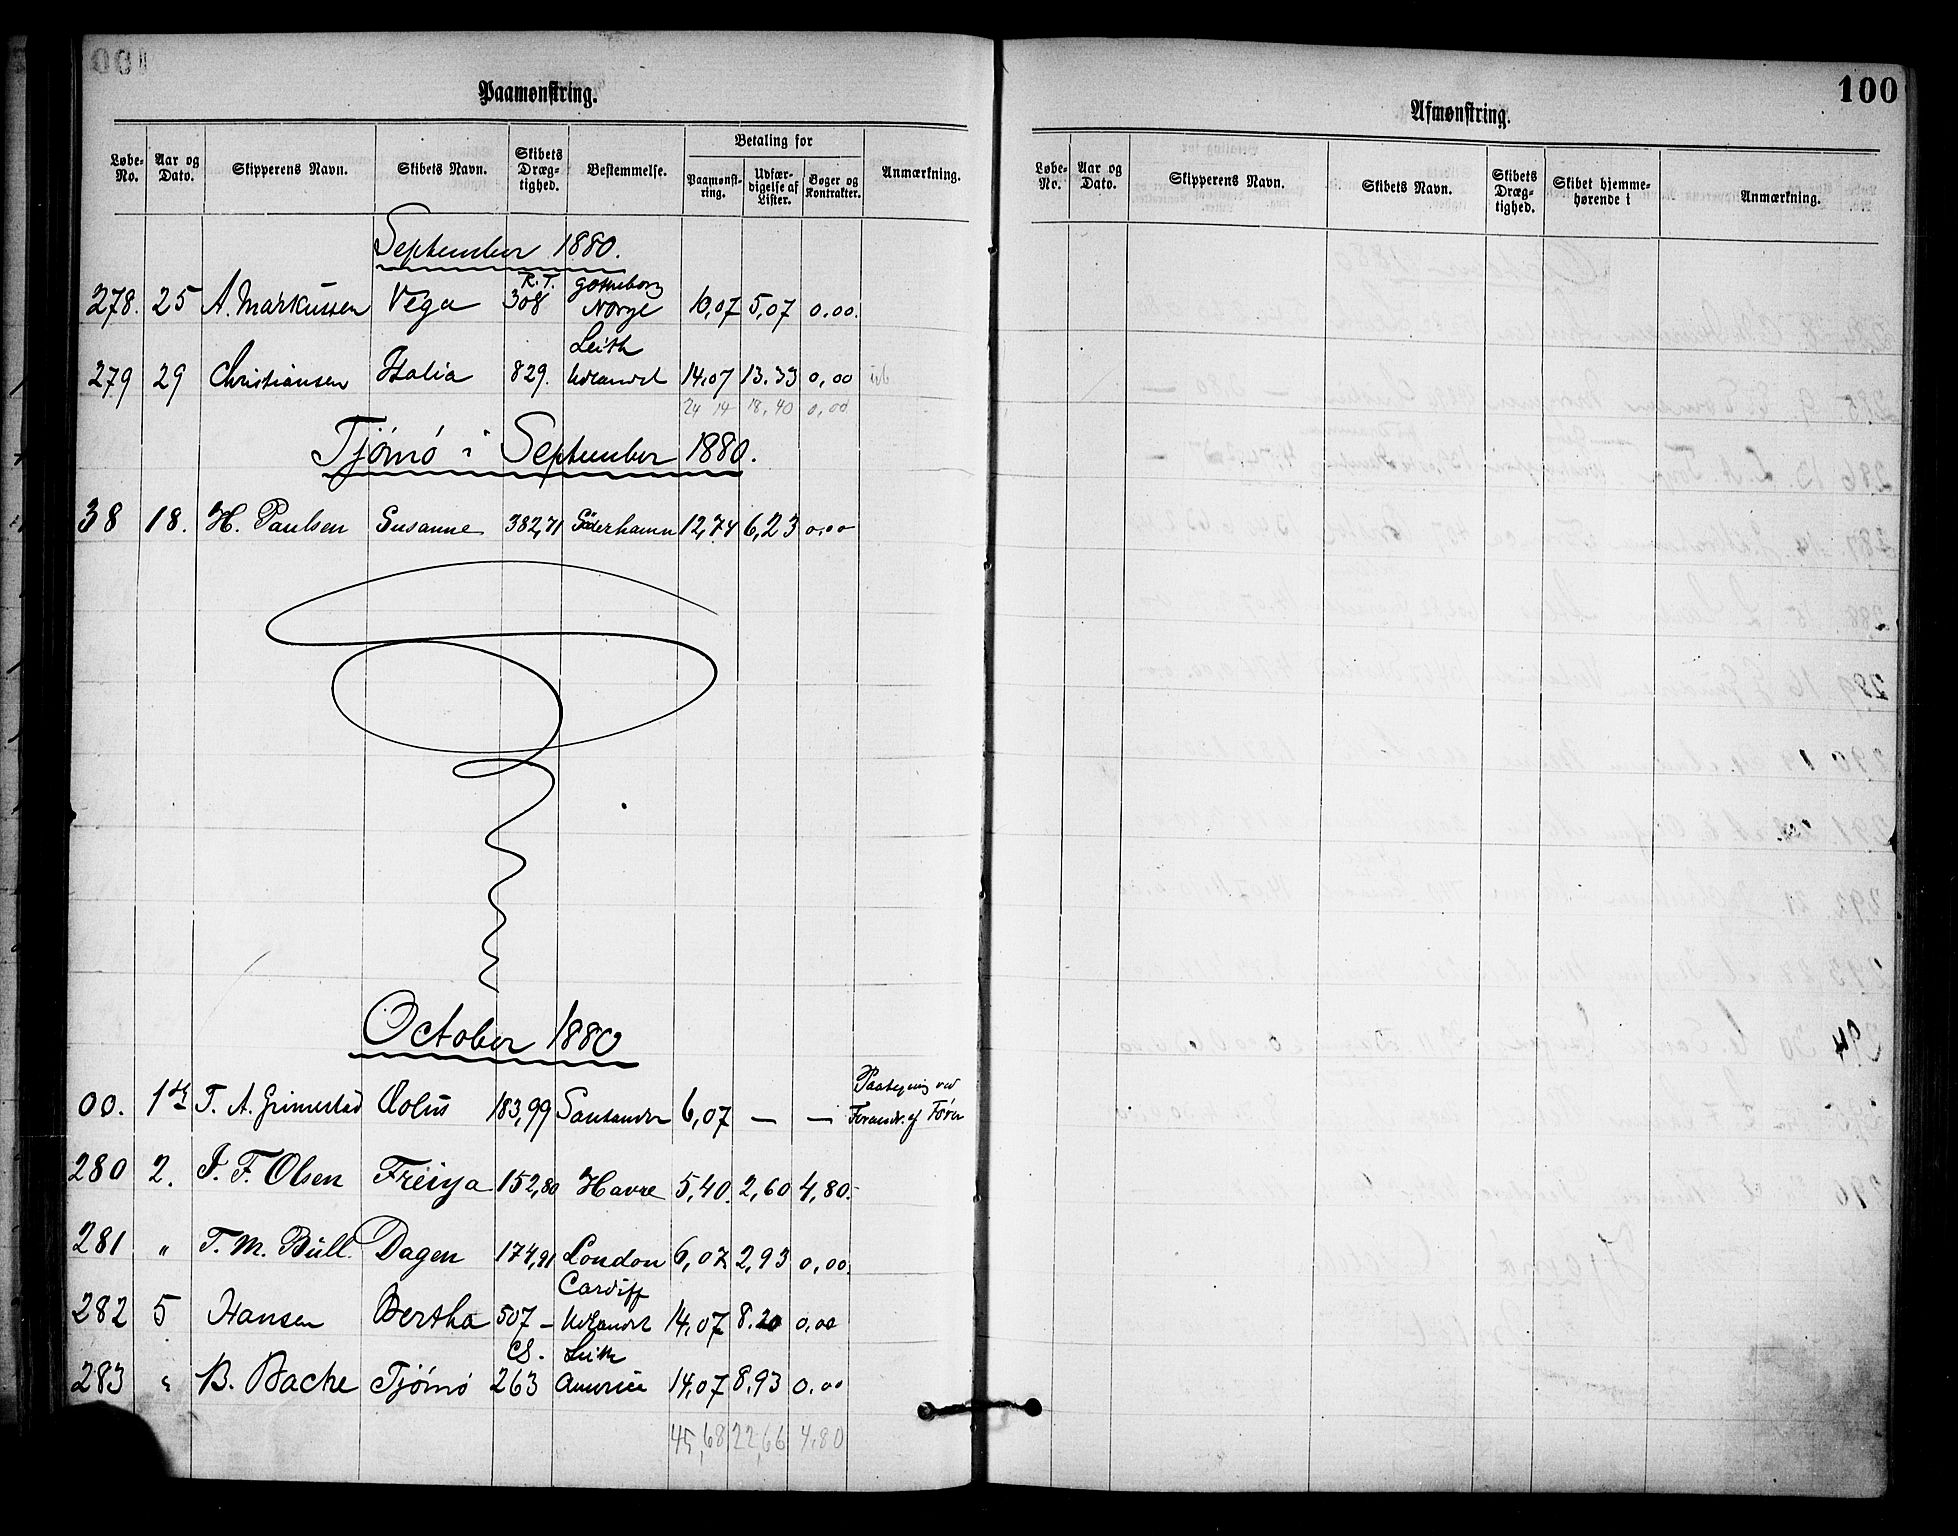 Paamønstring.
Løbe-No. Aar og Dato. Skipperens Navn. Skibets Navn. Skibets Dræg-tighed. Bestemmelse. Betaling for Paamønst-ring. Udfær-digelse af Lister. Bøger og Kontrakter. Anmærkning.
September 1880.
R.T. Gotheborg
278. 25 A. Markussen Vega 308 Norge 10,07 5,07 0,00.
Leith
279 29 Christiansen Italia 829. Udlandet 14,07 13.33 0,00
24 14 18,40 0,00
Tjömö i September 1880.
38 18. H. Paulsen Susanne 382,71 Söderhamn 12,74 6,23 0,00
October 1880
Paategning ved
00. 1ste T. A. Grimestad Æolus 183,99 Santander 6,07 — — Forandr. af Fører
280 2. J. F. Olsen Freiya 152,80 Havre 5,40. 2,60 4,80.
281 " T. M. Büll Dagen 174,91 London 6,07 2,93 0,00.
Cardiff
282 5 Hansen Bertha 507 — Udlandet 14,07 8.20 0,00
CS. Leith
283 " B. Bache Tjömö 263 America 14,07 8,93 0,00
45,68 22,66 4,80
100
Afmønstring.
Løbe-No. Aar og Dato. Skipperens Navn. Skibets Navn. Skibets Dræg-tighed. Skibet hjemme-hørende i Anmærkning.